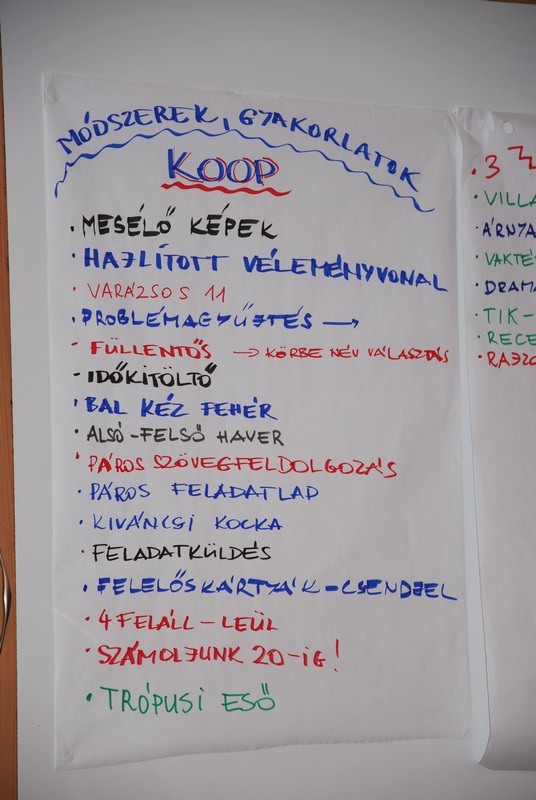 MÓDSZEREK, GYAKORLATOK
KOOP
· MESÉLŐ KÉPEK
· HAJLÍTOTT VÉLEMÉNYVONAL
· VARÁZSOS 11
· PROBLÉMAGYŰJTÉS →
· FÜLLENTŐS → KÖRBE NÉV VÁLASZTÁS
· IDŐKITÖLTŐ
· BAL KÉZ FEHÉR
· ALSÓ-FELSŐ HAVER
· PÁROS SZÖVEGFELDOLGOZÁS
· PÁROS FELADATLAP
· KIVÁNCSI KOCKA
· FELADATKÜLDÉS
· FELELŐSKÁRTYÁK-CSENDJEL
· 4 FELÁLL - LEÜL
· SZÁMOLJUNK 20-IG!
· TRÓPUSI ESŐ
· 3
· VILLA
· ÁRNYA
· VAKTÉ
· DRAMA
· TIK-
· RECE
· RAJZO